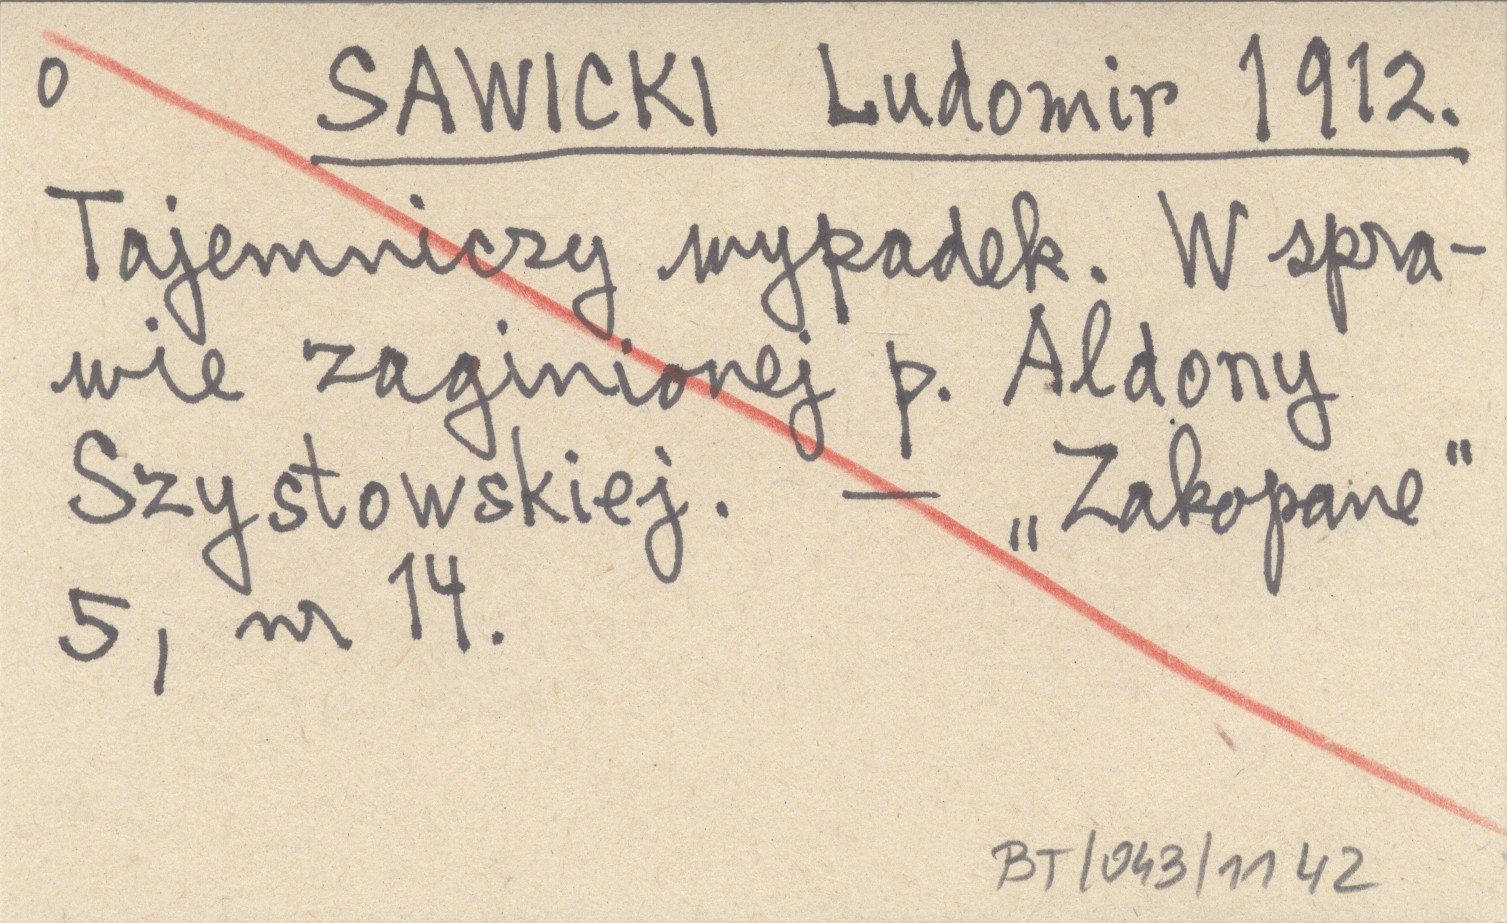 o SAWICKI Ludomir 1912.
Tajemniczy wypadek. W spra-
wie zaginionej p. Aldony
Szystowskiej. — „Zakopane"
5, nr 14.
BT/043/1142